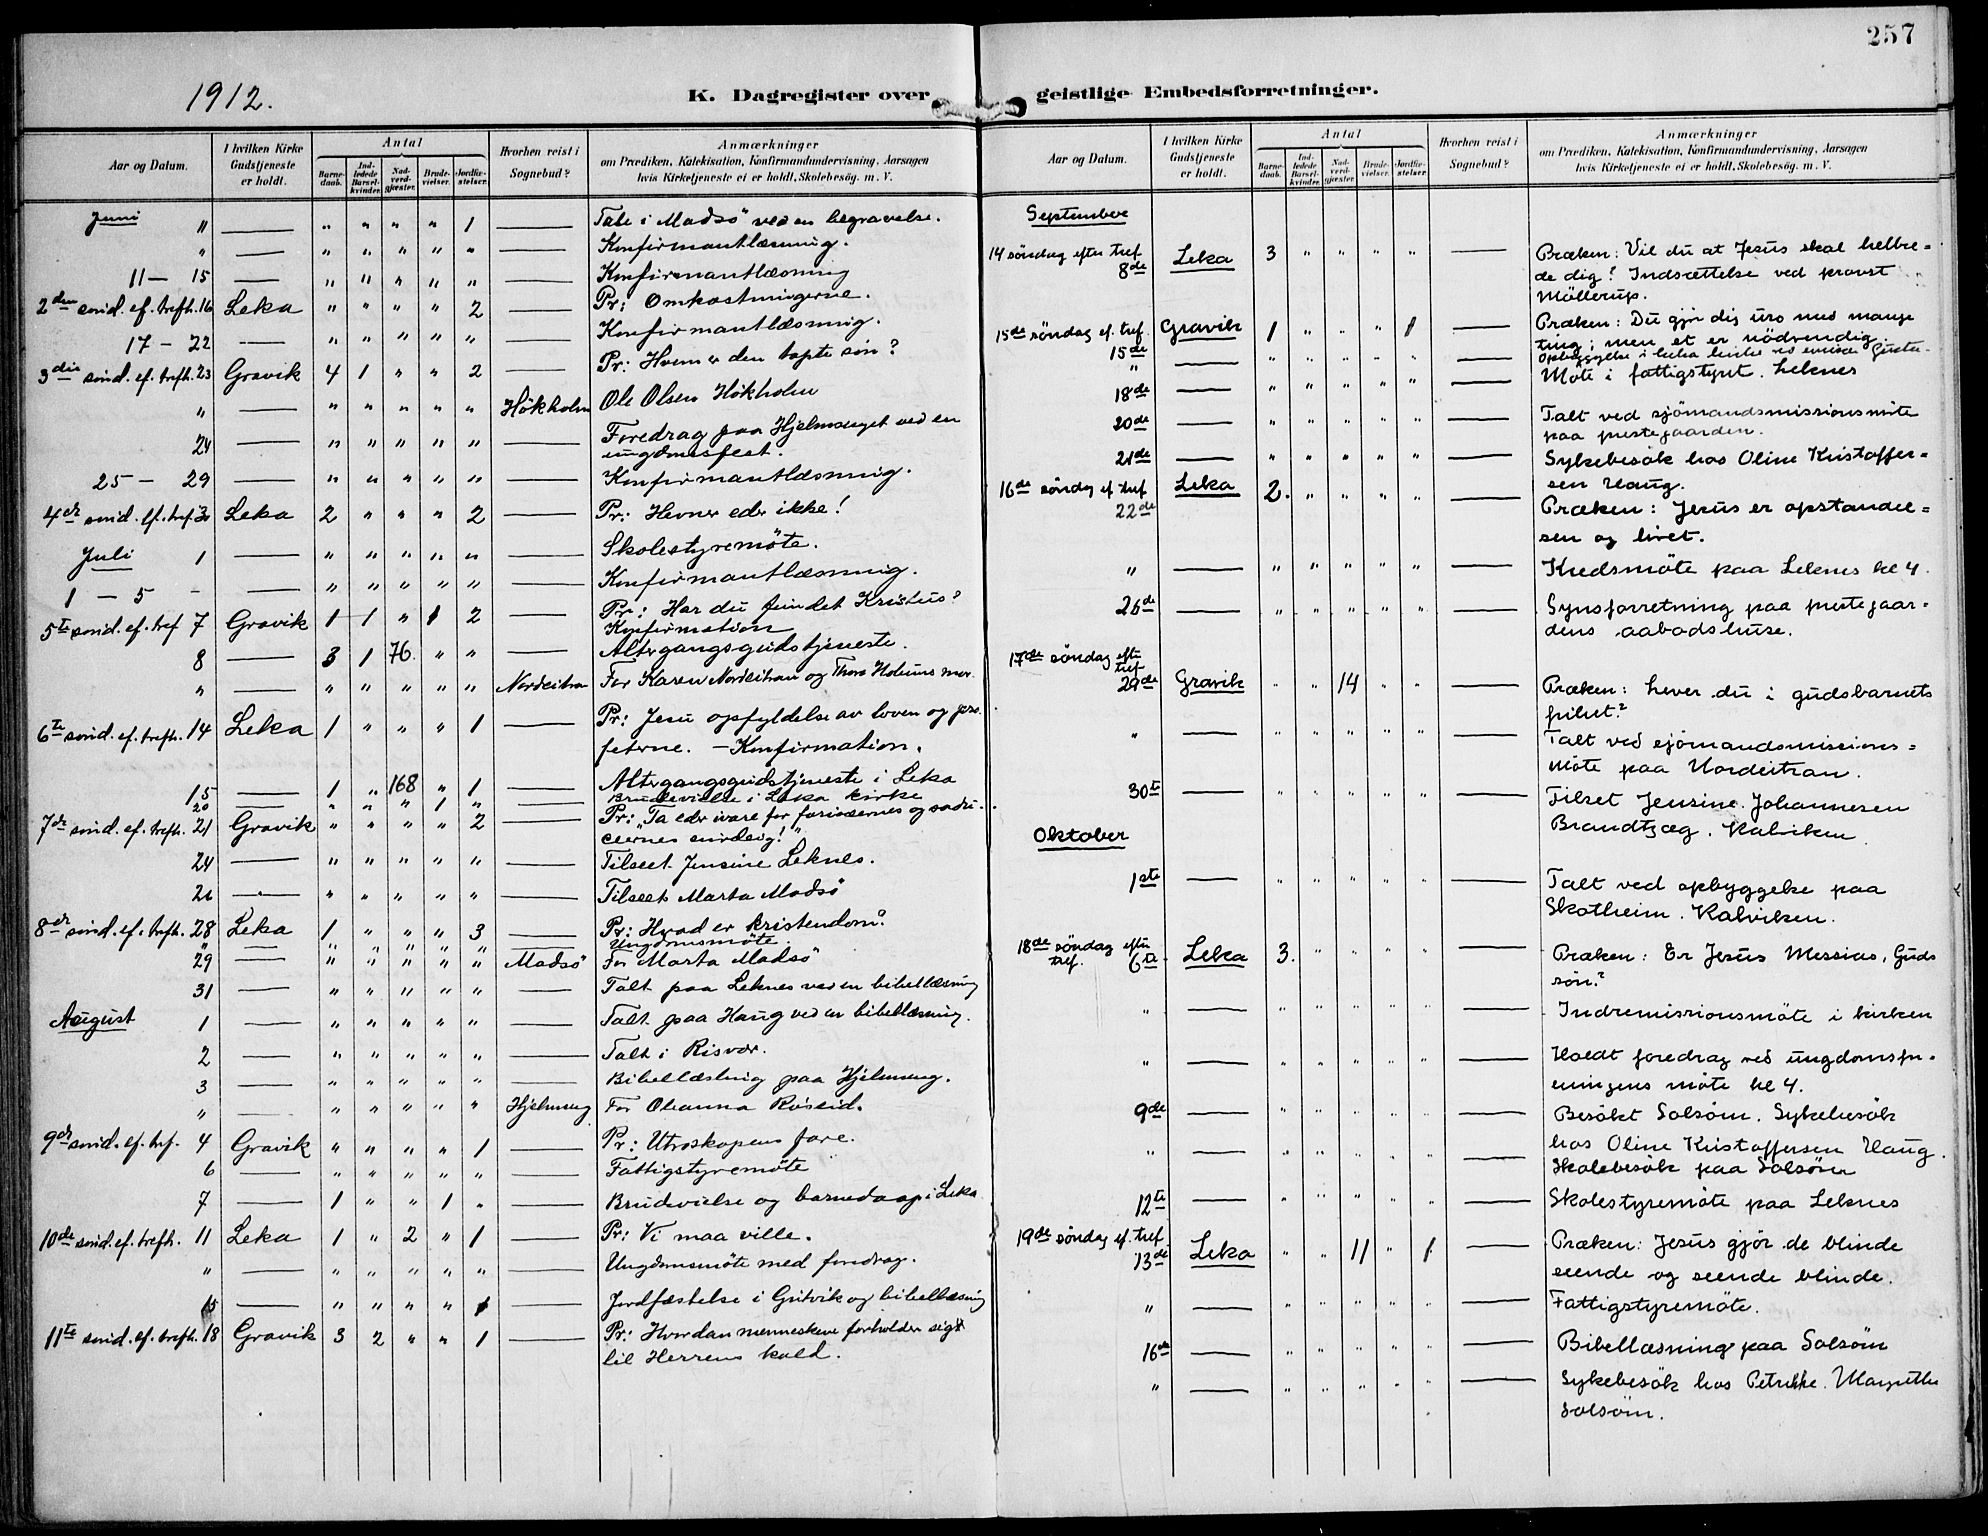 257
1912.
K. Dagregister over geistlige Embedsforretninger.
Aar og Datum. | I hvilken Kirke Gudstjeneste er holdt. | Antal | Barnedaab. | Indledede Barselkvinder. | Nadverdgjæster. | Brudevielser. | Jordfæstelser. | Hvorhen reist i Sognebud? | Anmærkninger om Prædiken, Katekisation, Konfirmandundervisning, Aarsagen hvis Kirketjeneste ei er holdt, Skolebesög. m. V.
Juni " — " " " " 1 — Tale i Madsö ved en begravelse.
" — " " " " " — Konfirmantlæsning.
11 – 15 — " " " " " — Konfirmantlæsning
2den sønd. ef. trefh. 16 Leka " " " " 2 — Pr: Omkostningerne.
17 – 22 — " " " " " — Konfirmantlæsning.
3die sønd. ef. trefh. 23 Gravik 4 1 " " 2 — Pr: Hvem er den tapte søn?
" — " " " " " Hökholm Ole Olsen Hökholm
24 — " " " " " — Foredrag paa Hjelmsuget ved en
ungdomsfest.
25 – 29 — " " " " " — Konfirmantlæsning.
4de sønd. ef. tref. 30 Leka 2 " " " 2 — Pr: Hevner eder ikke!
Juli 1 — " " " " " — Skolestyremöte.
1 – 5 — " " " " " — Konfirmantlæsning.
5te sønd. ef. tref 7 Gravik 1 1 " 1 2 — Pr: Har du fundet Kristus?
Konfirmation
8 — 3 1 76 " " — Altergangsgudstjeneste.
" — " " " " " Nordeitran For Karen Nordeitran og Thora Holiums mor.
6te sønd. ef. trefh. 14 Leka 1 " " " 1 — Pr: Jesu opfyldelse av loven og pro-
feterne. – Konfirmation.
15 — 1 " 168 " 1 — Altergangsgudstjeneste i Leka
20 — " " " 1 " — Brudevielse i Leka kirke
7de sønd. ef. trefh. 21 Gravik " " " " 2 — Pr: "Ta eder ivare for fariseernes og sadu-
ceernes surdeig!"
24 — " " " " " — Tilseet Jensine Leknes.
26 — " " " " " — Tilseet Marta Madsö
8de sønd. ef. trefh. 28 Leka 1 " " " 3 — Pr: Hvad er kristendom?
" — " " " " " — Ungdomsmöte.
29 — " " " " " Madsö For Marta Madsö
31 — " " " " " — Talt paa Leknes ved en bibellæsning
August 1 — " " " " " — Talt paa Haug ved en bibellæsning.
2 — " " " " " — Talt i Risvær.
3 — " " " " " — Bibellæsning paa Hjelmseng.
" — " " " " " Hjelmseng For Oleanna Rossid.
9de sønd. ef. tref. 4 Gravik " " " " 1 — Pr: Utroskapens fare.
6 — " " " " " — Fattigstyremöte
7 — 1 " " 1 " — Brudevielse og barnedaap i Leka
10de sønd. ef. trefh. 11 Leka 1 " 2 " 1 — Pr: Vi maa ville.
" — " " " " " — Ungdomsmöte med foredrag.
15 — " " " " 1 — Jordfæstelse i Gutvik og bibellæsning
11te sønd. ef. trefh. 18 Gravik 3 2 " " 1 — Pr: Hvordan menneskene forholder sig
til Herrens kald.
Aar og Datum. | I hvilken Kirke Gudstjeneste er holdt. | Antal | Barnedaab. | Indledede Barselkvinder. | Nadverdgjæster. | Brudevielser. | Jordfæstelser. | Hvorhen reist i Sognebud? | Anmærkninger om Prædiken, Katekisation, Konfirmandundervisning, Aarsagen hvis Kirketjeneste ei er holdt. Skolebesög. m. V.
September
14 søndag efter tref. 8de Leka 3 " " " " — Præken: Vil du at Jesus skal helbre=
de dig? Indsættelse ved provst
Möllerup.
15de søndag ef. tref. 15de Gravik 1 " " " 1 — Præken: Du gjör dig uro med mange
ting; men et er nödvendig.
" — " " " " " — Opbyggelse i Leka kirke ved
18de — " " " " " — Möte i fattigstyret. Leknes
20de — " " " " " Talt ved sjömandsmissionsmöte
paa prestegaarden.
21de — " " " " " — Sykebesök hos Oline Kristoffer=
sen Haug.
16de søndag ef tref 22de Leka 2. " " " " — Præken: Jesus er opstandel=
sen og livet.
" — " " " " " — Kredsmöte paa Leknes kl 4.
26de — " " " " " — Synsforretning paa prestegaar=
dens aabodshuse.
17de søndag eftr tref 29de Gravik " " 14 " " — Præken: Lever du i gudsbarnets
frihet?
" — " " " " " — Talt ved sjömandsmissions=
möte paa Nordeitran.
30te — " " " " " — Tilset Jensine Johannesen
Brandtzæg. Kalviken
Oktober
1ste — " " " " " — Talt ved opbyggelse paa
Skotheim. Kalviken.
18de søndag efter tref. 6te Leka 3. " " " " — Præken: Er Jesus Messias, Guds
søn?
" — " " " " " — Indremissionsmöte i kirken
" — " " " " " — Holdt foredrag ved ungdomsfor-
eningens möte kl 4.
9de — " " " " " — Besökt Solsöm. Sykebesök
hos Oline Kristoffersen Haug.
" — " " " " " — Skolebesök paa Solsöm
12te — " " " " " — Skolestyremöte paa Leknes
19de søndag ef. tref. 13de Leka " " 11 " 1 — Præken: Jesus gjör de blinde
seende og seende blinde.
" — " " " " " — Fattigstyremöte.
16de — " " " " " — Bibellæsning paa Solsöm
" — " " " " " — Sykebesök hos Petrikke Margrethe
Solsöm.